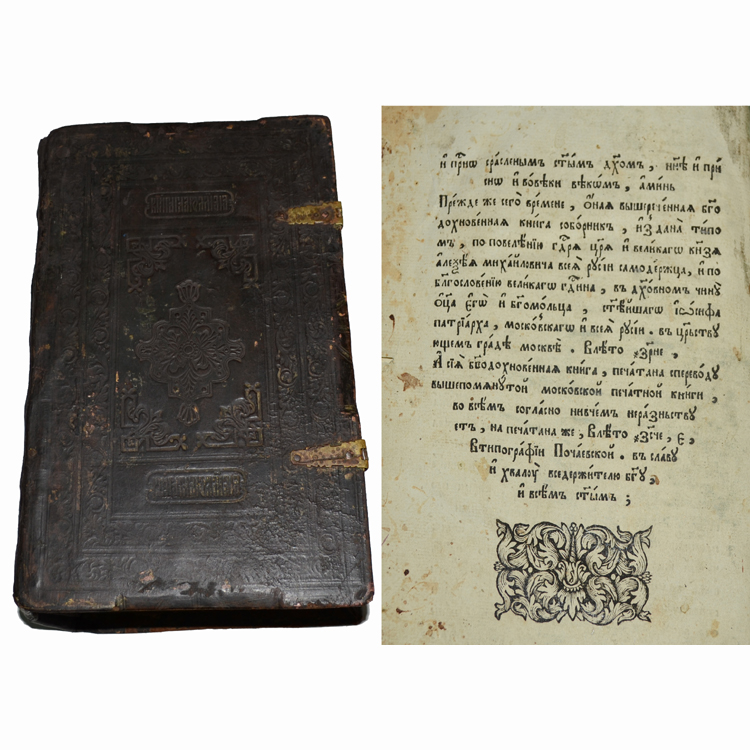 и҆ пр҇нѡ сраслєнымъ ст҃ы́мъ дх҃о́мъ , нн҃ѣ и҆ при
снѡ и҆ вовѣки вѣко́мъ , а҆ми́нь
Пре́жде же сего̀ вре́мене , ѻ҆́ная вышерече́нная бг҃о
дохнове́нная кни́га собо́рникъ , и҆здана̀ ти́по
мъ , по повелѣ́нїю гдр҇я цр҃я̀ и҆ вели́кагѡ кн҃зя
Алеѯѣ́я миха́йловича всея̀ русі́и самоде́ржца , и҆ по
блг҇ослове́нїю вели́кагѡ гдн҇и́на , въ дх҃о́вномъ чинꙋ̀
ѻ҆ц҃а̀ є҆гѡ̀ и҆ бг҃омо́льца , ст҃ѣ́йшагѡ і҆ѡ́сифа
патрїа́рха , моско́вскагѡ и҆ всея̀ русі́и . въ цр҇ству
ющемъ гра́дѣ москвѣ̀ . Влѣ́то ҂зрн҃е ,
А сїя̀ бг҃одохнове́нная кни́га , печа́тана сперево́дꙋ
вышепомянꙋ́той моско́вской печа́тной кни́ги ,
во все́мъ согла́сно нивче́мъ нера́зньству
етъ , на печа́тана же , Влѣ́то ҂зсч҃е , є҃ ,
Втипогра́фїи Поча́евской . въ сла́ву
и҆ хвалоу̀ вседержи́телю бг҃ꙋ ,
и҆ всѣ́мъ ст҃ы́мъ ;